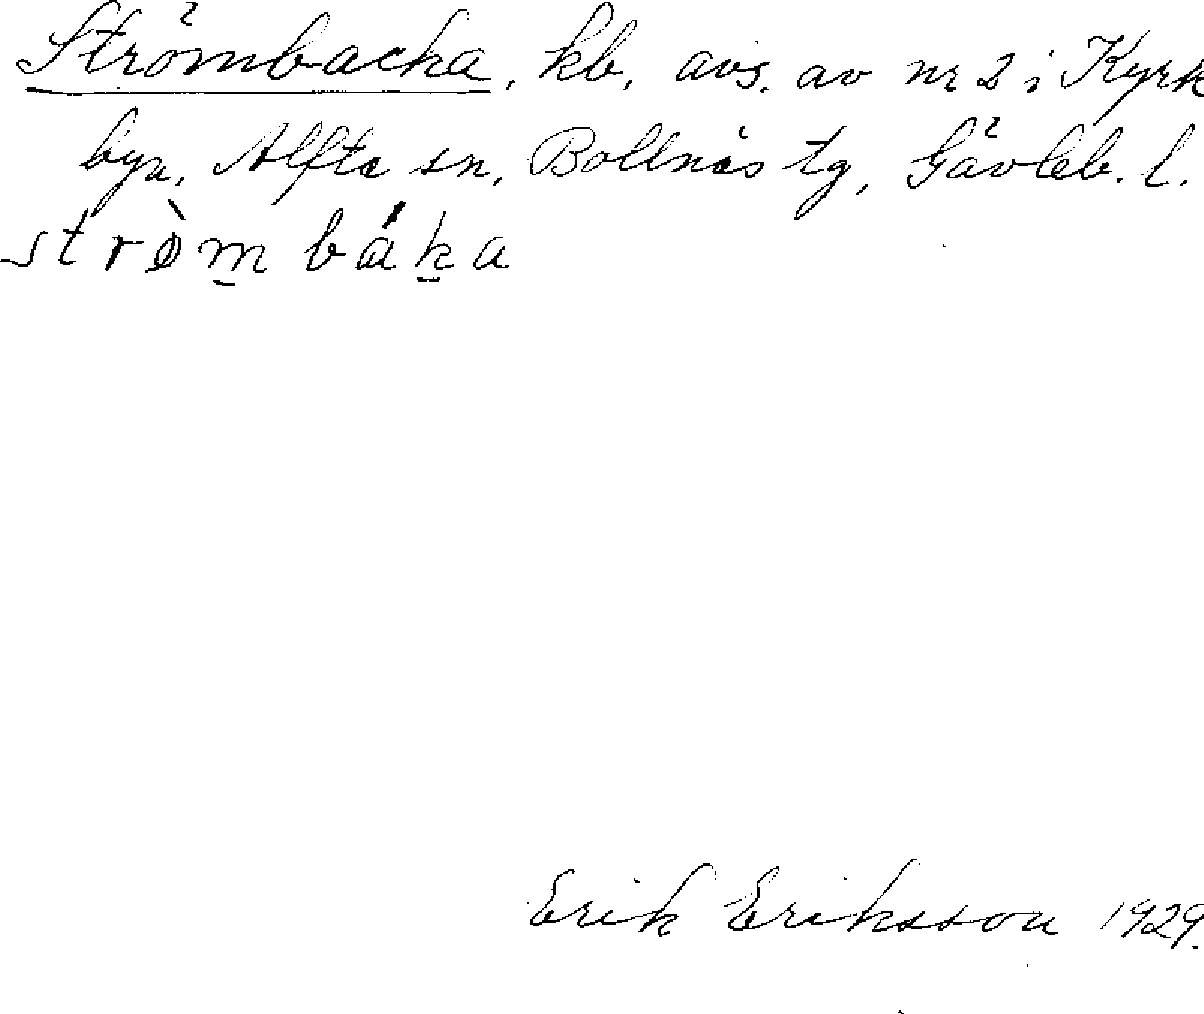 Strömbacka, kb, avs. av nr 2 i Kyrk
byn, Alfta sn, Bollnäs tg, Gävleb. l.
strø̀m báka
Erik Eriksson 1929.